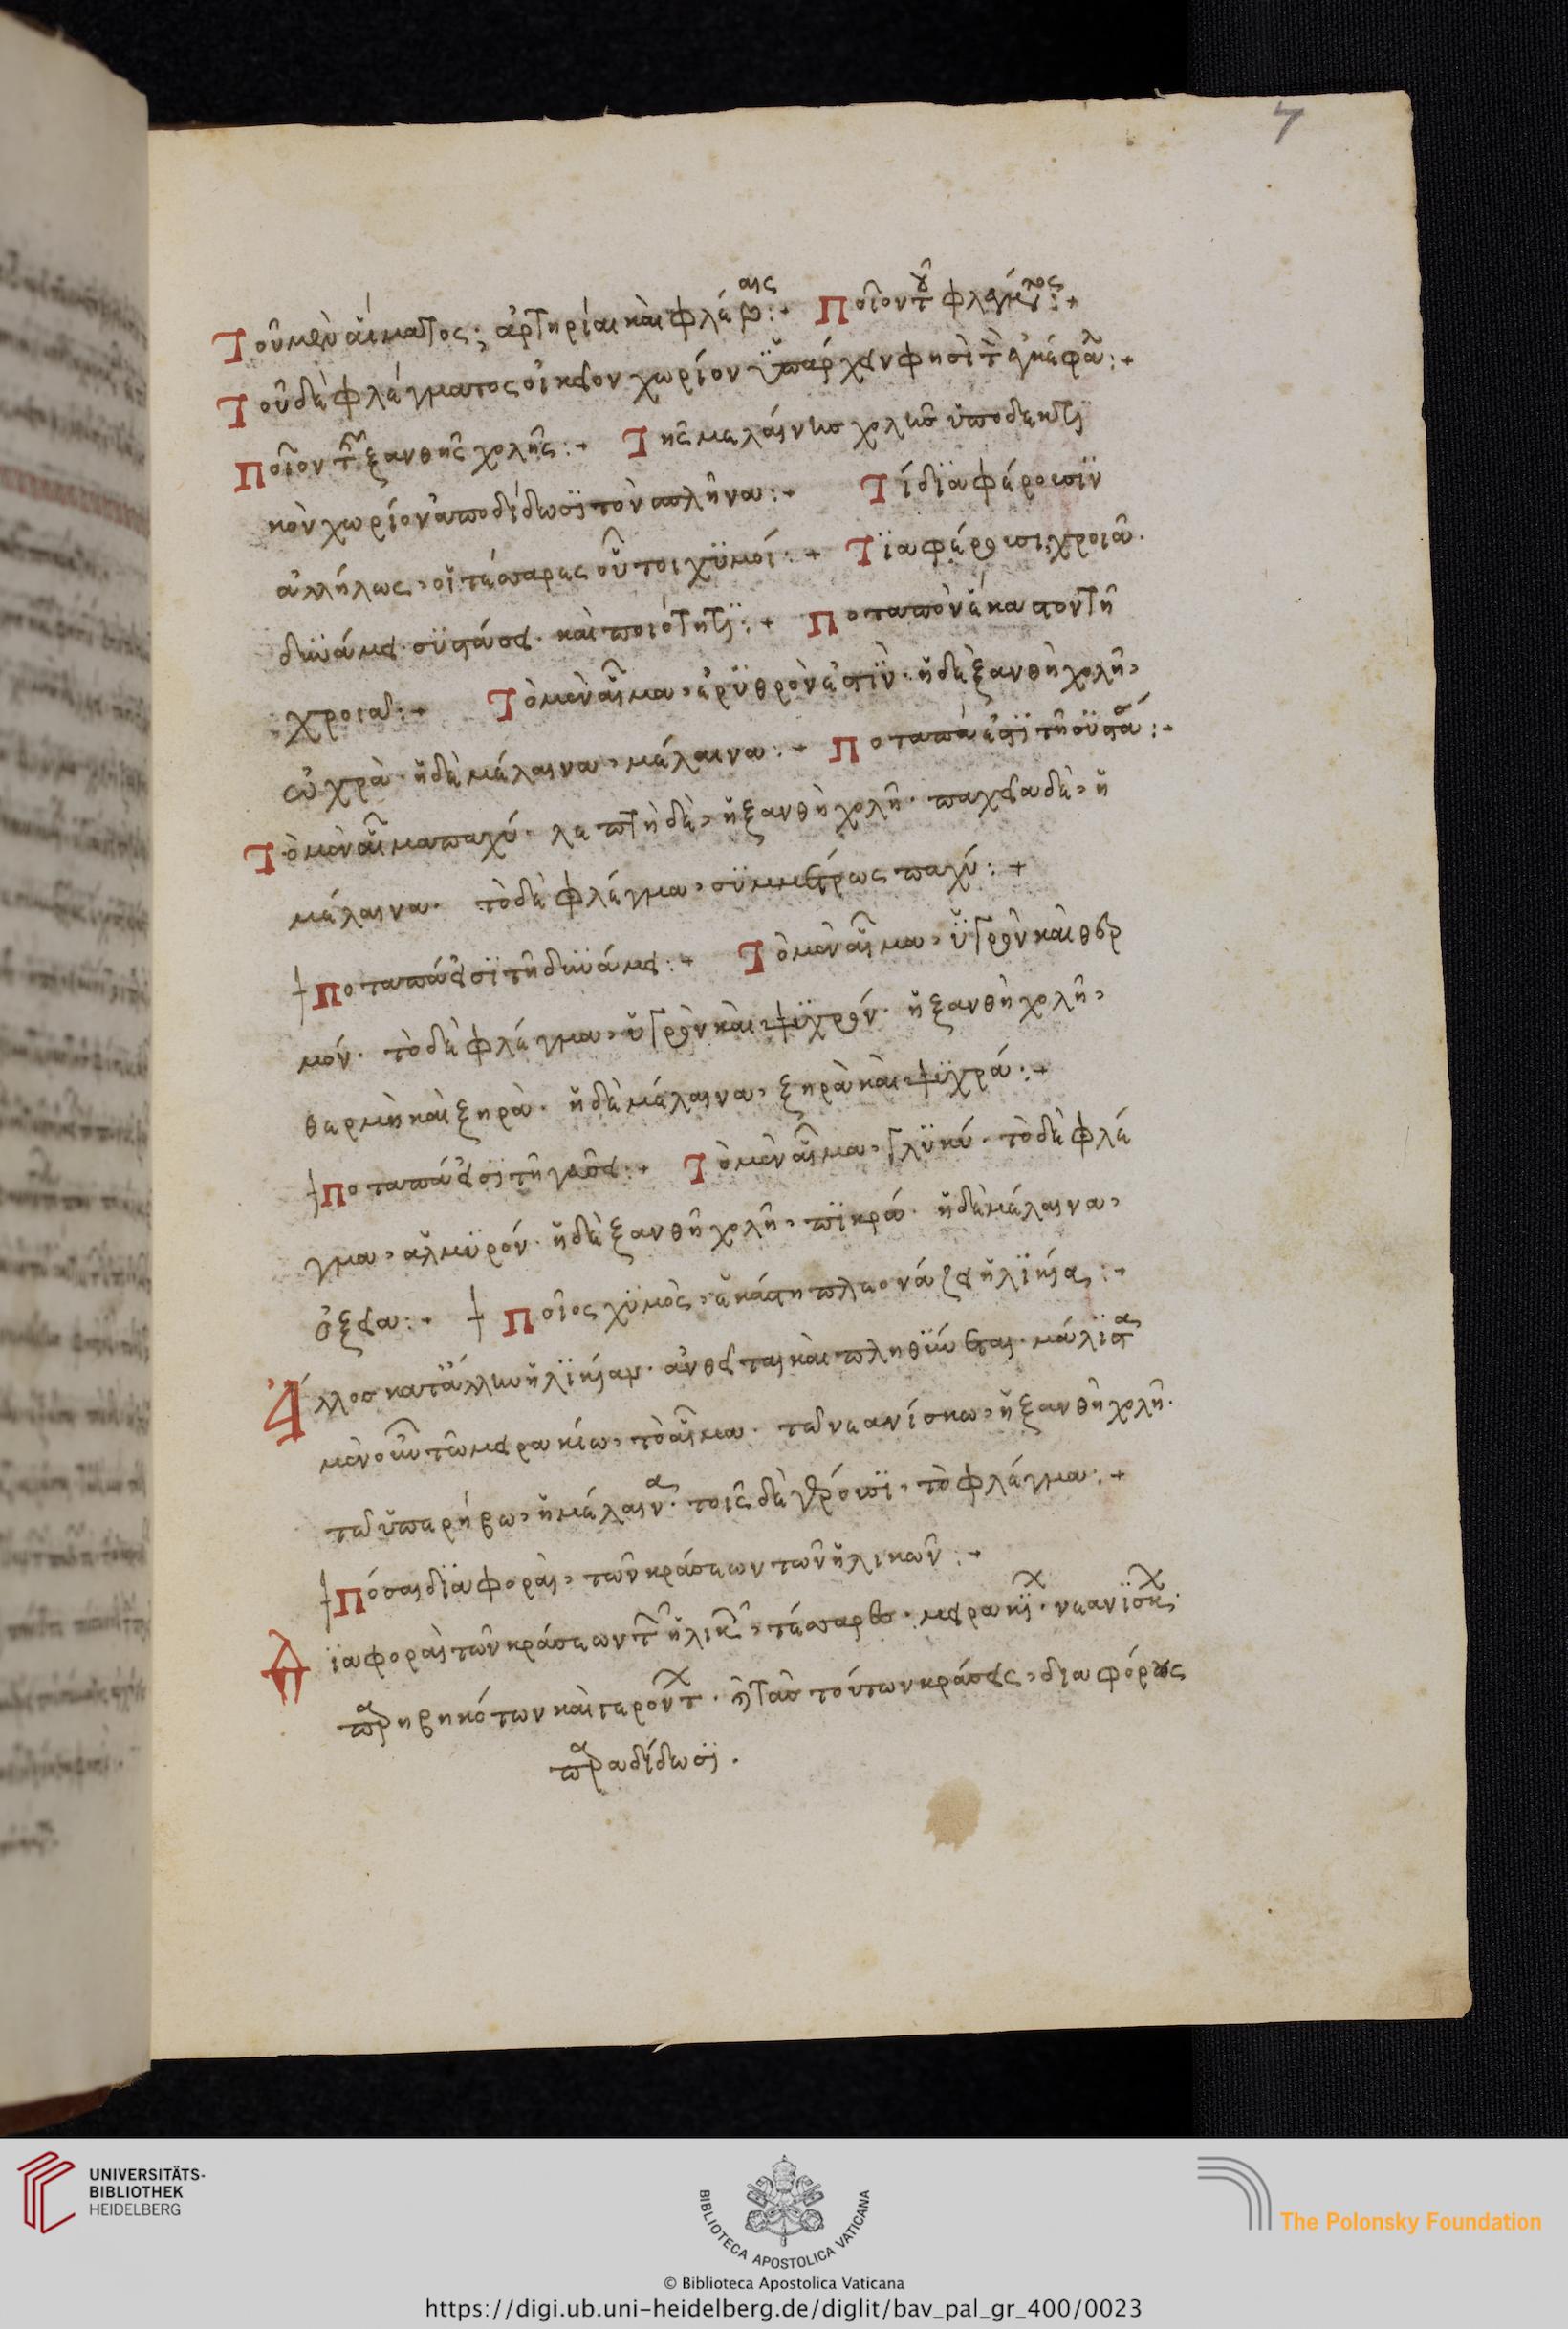 7
Τοῦ μὲν αἵματος, ἀρτηρίαι καὶ φλέβαις :+ Ποῖον τοῦ φλέγματος :+
Τοῦ δὲ φλέγματος οἰκεῖον χωρίον ὑπάρχειν φησὶ τὸν ἐγκέφα :+
Ποῖον τῆς ξανθῆς χολῆς :+ Τῆς μελάινης χολῆς ὑποδεκτϊ
κὸν χωρίον ἀποδίδωσϊ τὸν σπλῆνα :+ Τί διαφέρουσϊν
ἀλλήλως, οἱ τέσσαρες οὗτοι χϋμοί :+ Διαφέρουσι, χροιᾶ.
δυνάμει. συστάσει. καὶ ποιότητϊ :+ Ποταπὸν ἕκαστον τῆ
χροιᾶ :+ Τὸ μὲν αἷμα, ἐρϋθρὸν ἐστϊν. ἡ δὲ ξανθὴ χολὴ,
ὠχρὰ. ἡ δὲ μέλαινα, μέλαινα :+ Ποταπὰ ἐστϊ τῆ συστά :+
Τὸ μὲν αἷμα παχύ. λεπτὴ δὲ, ἡ ξανθὴ χολὴ. παχεῖα δὲ, ἡ
μέλαινα. τὸ δὲ φλέγμα, σϋμμέτρως παχύ :+
Ποταπά εἰσϊ τῆ δυνάμει :+ Τὸ μὲν αἷμα, ὑγρὸν καὶ θερ
μόν. τὸ δὲ φλέγμα, ὑγρὸν καὶ ψϋχρόν. ἡ ξανθὴ χολὴ,
θερμὴ καὶ ξηρὰ. ἡ δὲ μέλαινα, ξηρὰ καὶ ψϋχρά :+
Ποταπά εἰσϊ τῆ γεύσει :+ Τὸ μὲν αἷμα, γλϋκύ. τὸ δὲ φλέ
γμα, ἁλμϋρόν. ἡ δὲ ξανθὴ χολὴ, πϊκρά. ἡ δὲ μέλαινα,
ὀξεῖα :+ Ποῖος χϋμὸς, ἑκάστη πλεονάζει ἡλϊκία :+
Ἄλλος κατ' ἄλλην ἡλϊκίαν. ἀνθεῖται καὶ πληθϋνεται. μάλϊστα
μὲν οὖν τῶ μειρακίω, τὸ αἷμα. τῶ νεανίσκω, ἡ ξανθὴ χολὴ.
τῶ ὑπερήβω, ἡ μέλαινα. τοῖς δὲ γέρουσϊ, τὸ φλέγμα :+
Πόσαι διαφοραὶ, τῶν κράσεων τῶν ἡλικιῶν :+
Διαφοραὶ τῶν κράσεων τῶν ἡλικ, τέσσαρες. μειρακϊ. νεανϊσκ.
παρηβηκότων καὶ γερόντ. τὰς τούτων κράσεις, διαφόρως
παραδίδωσϊ.
UNIVERSITÄTS-
BIBLIOTHEK
HEIDELBERG
BIBLIOTECA APOSTOLICA VATICANA
The Polonsky Foundation
© Biblioteca Apostolica Vaticana
https://digi.ub.uni-heidelberg.de/diglit/bav_pal_gr_400/0023